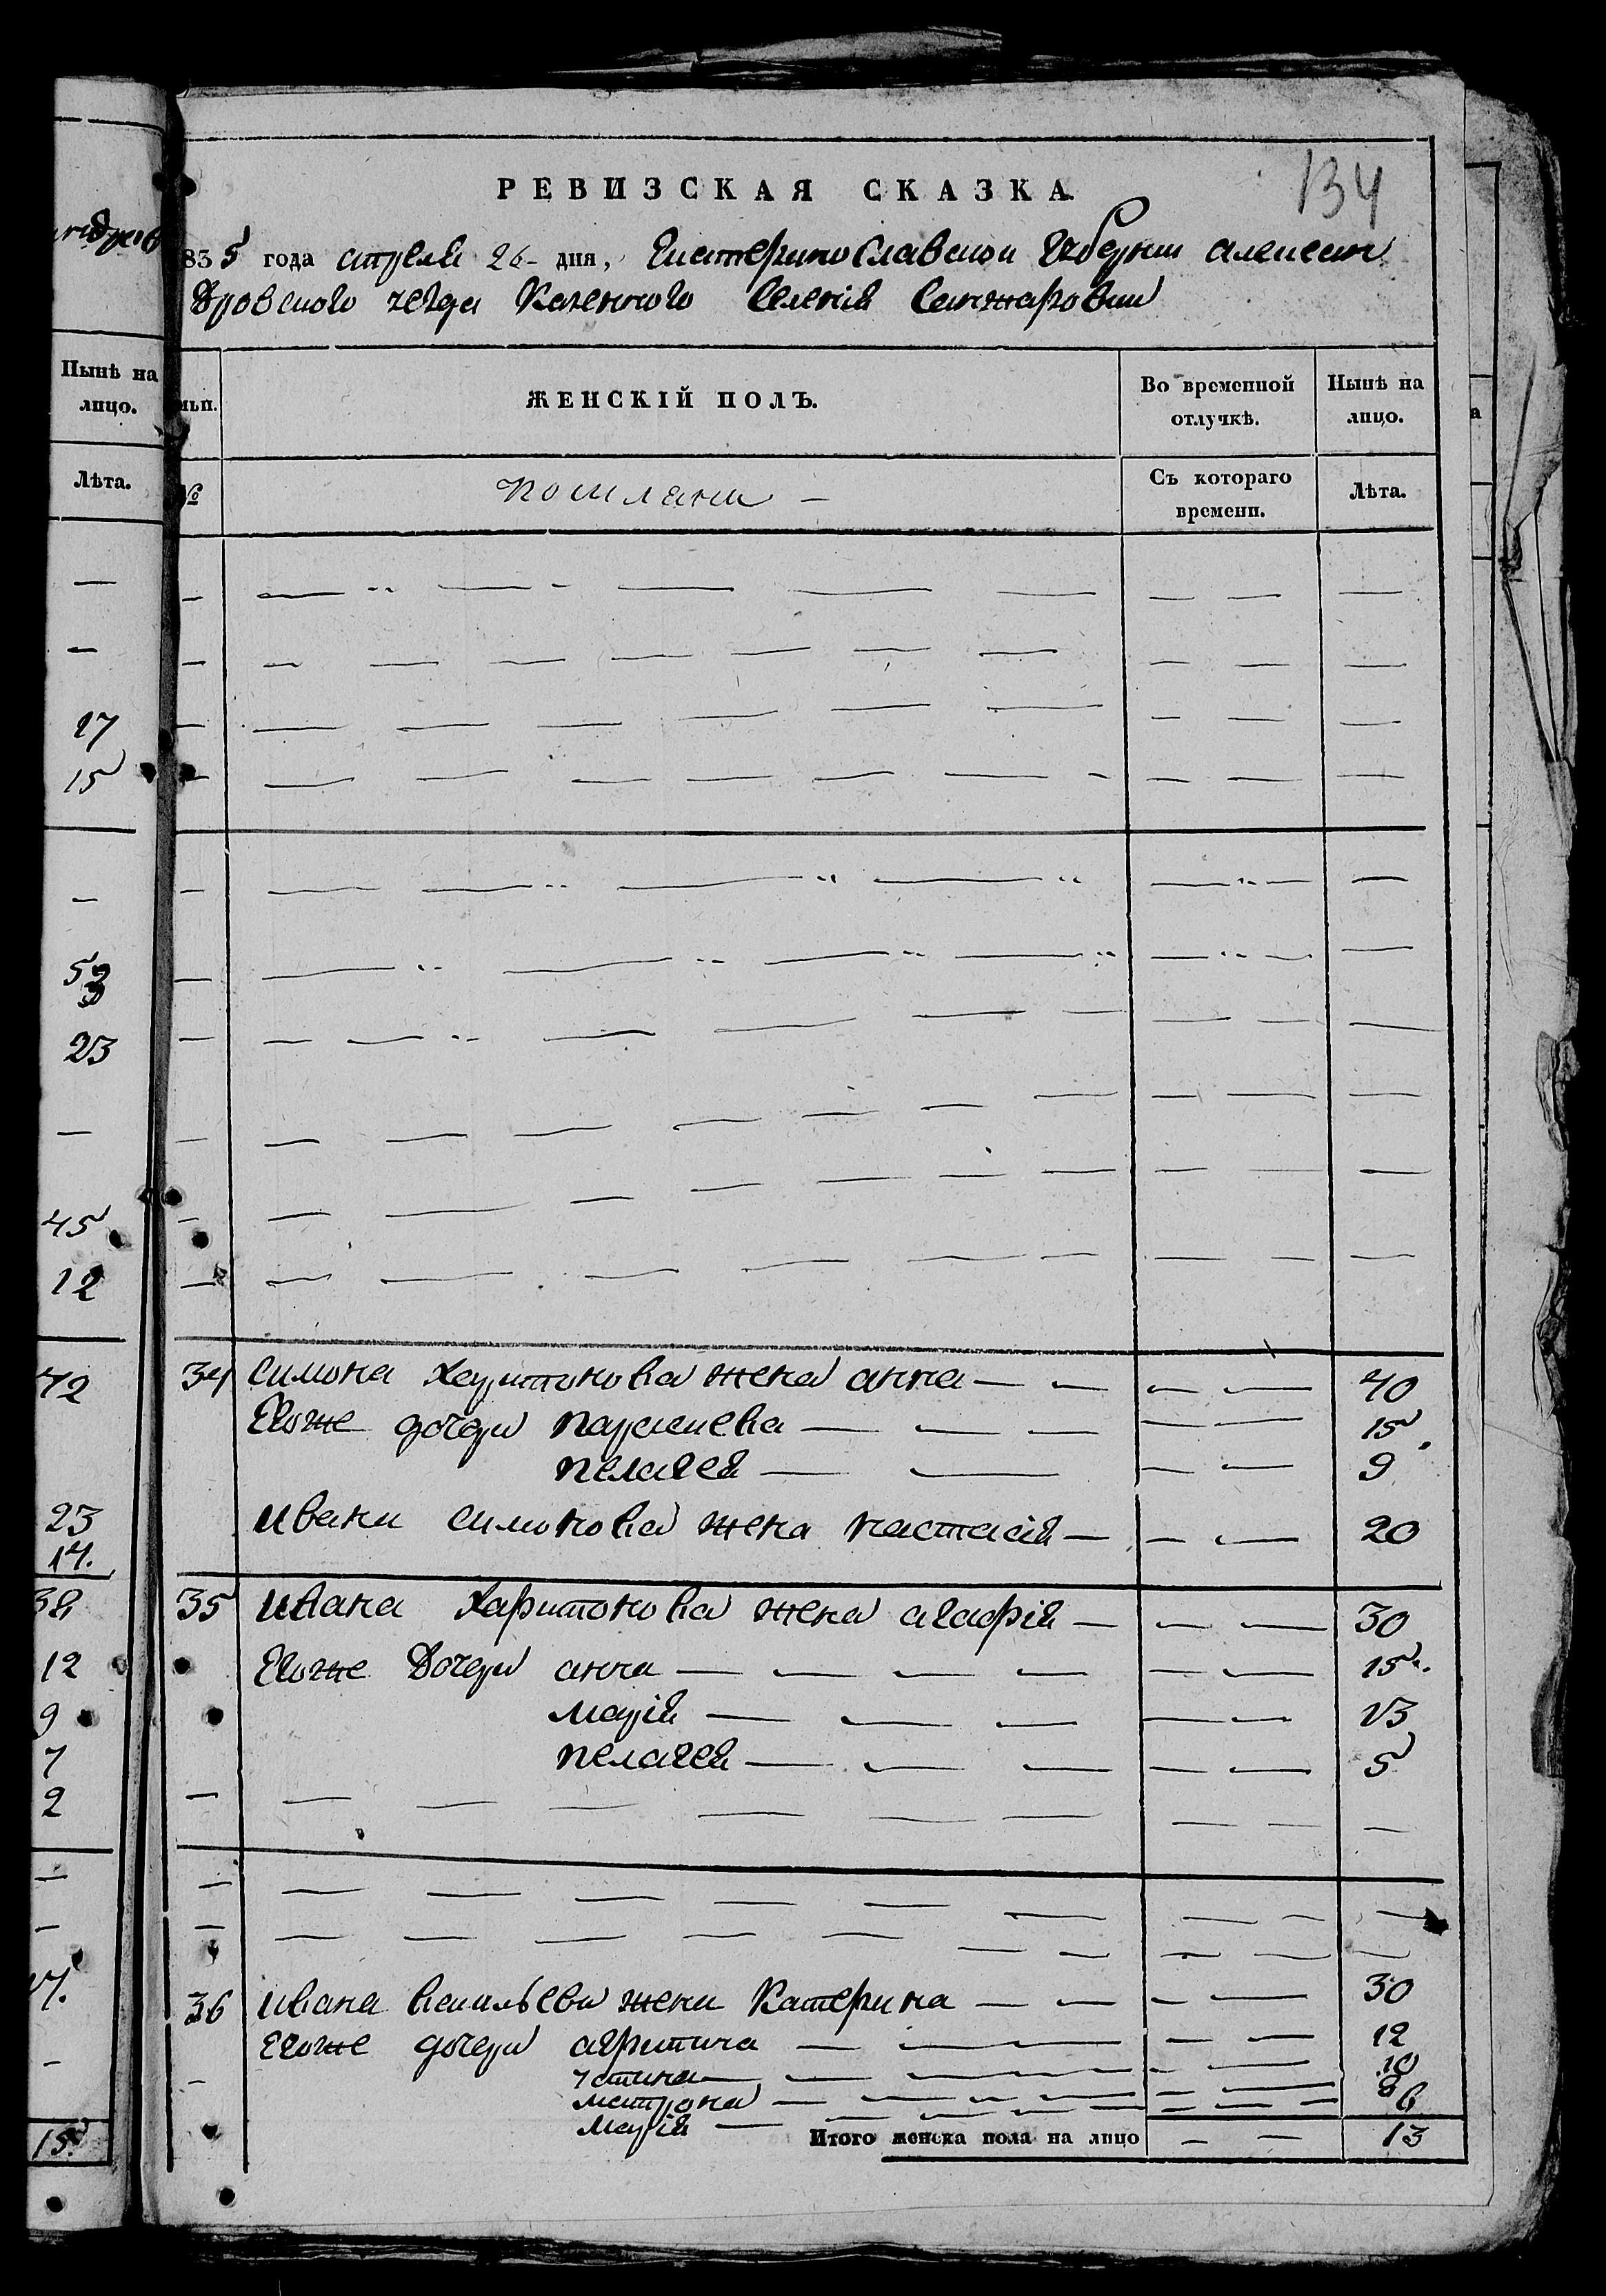 134
РЕВИЗСКАЯ СКАЗКА.
835 года апреля 26 дня, Екатеринославской Губернии александ
Дровского уезда Казенного Селения Санжаровки
Нынѣ на лицо.
Лѣта.
17
15
53
23
45
12
42
23
14.
38
12
9
7
2
15
№
ЖЕНСКІЙ ПОЛЪ.
Во временной отлучкѣ.
Нынѣ на лицо.
поселяни
Съ котораго времени.
Лѣта.
34 симона Харитонова жена анна 40
Егоже дочери параскева 15
пелагея 9
ивана симонова жена настасія 20
35 ивана Харитонова жена агафія 30
Егоже Дочери анна 15
марія 13
пелагея 5
36 ивана васильева жена Катерина 30
Егоже дочери агрипина 12
устина 10
матрона 8
марія 6
Итого женска пола на лицо 13